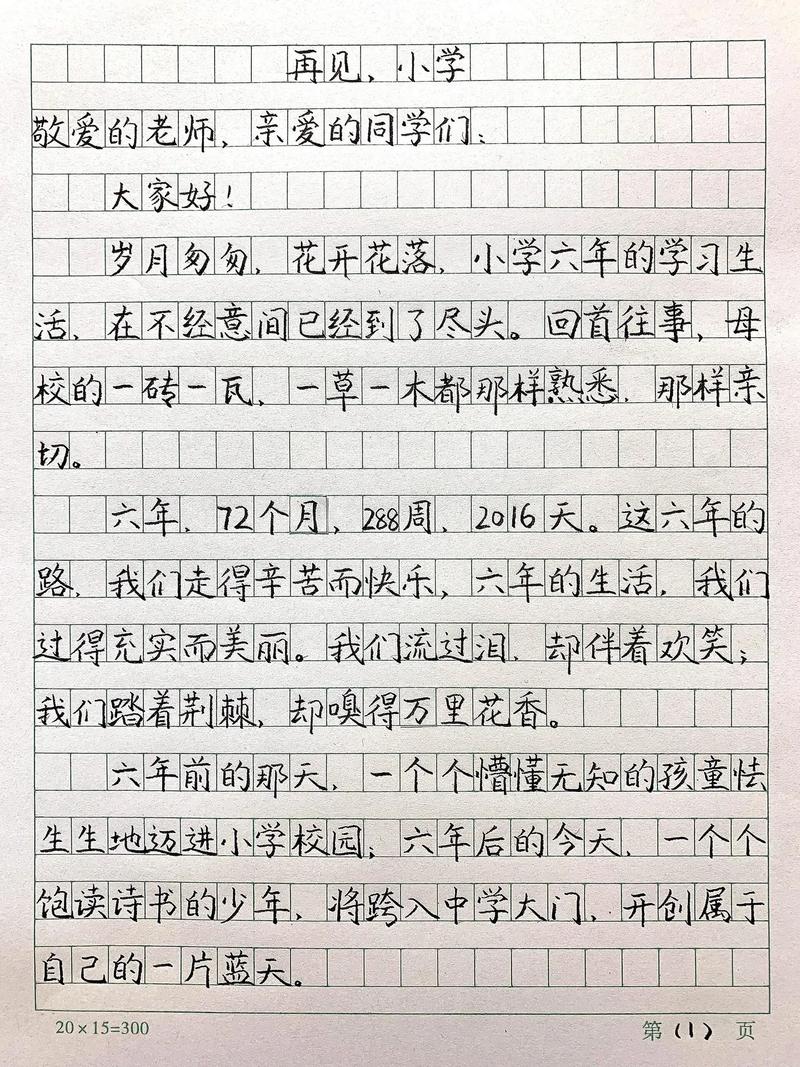 再见，小学
敬爱的老师，亲爱的同学们：
大家好！
岁月匆匆，花开花落，小学六年的学习生
活，在不经意间已经到了尽头。回首往事，母
校的一砖一瓦，一草一木都那样熟悉，那样亲
切。
六年，72个月，288周，2016天。这六年的
路，我们走得辛苦而快乐，六年的生活，我们
过得充实而美丽。我们流过泪，却伴着欢笑；
我们踏着荆棘，却嗅得万里花香。
六年前的那天，一个个懵懂无知的孩童怯
生生地迈进小学校园；六年后的今天，一个个
饱读诗书的少年，将跨入中学大门，开创属于
自己的一片蓝天。
20×15=300
第（1）页